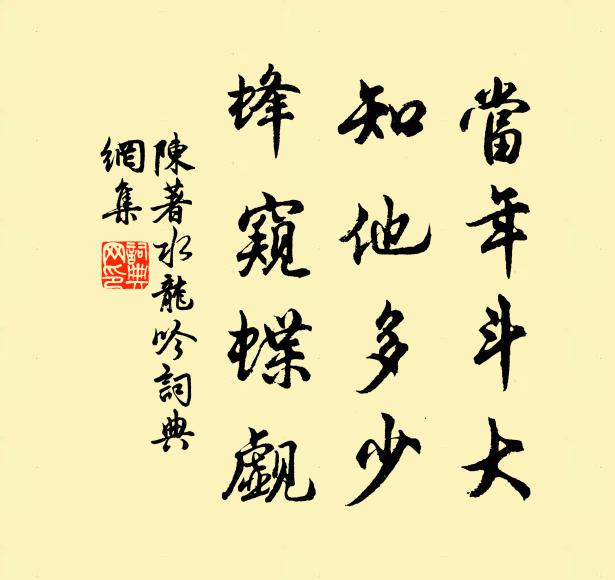 當年斗大
知他多少
蜂窺蝶覷
陳著水龍吟詞典
網集
詞典網印